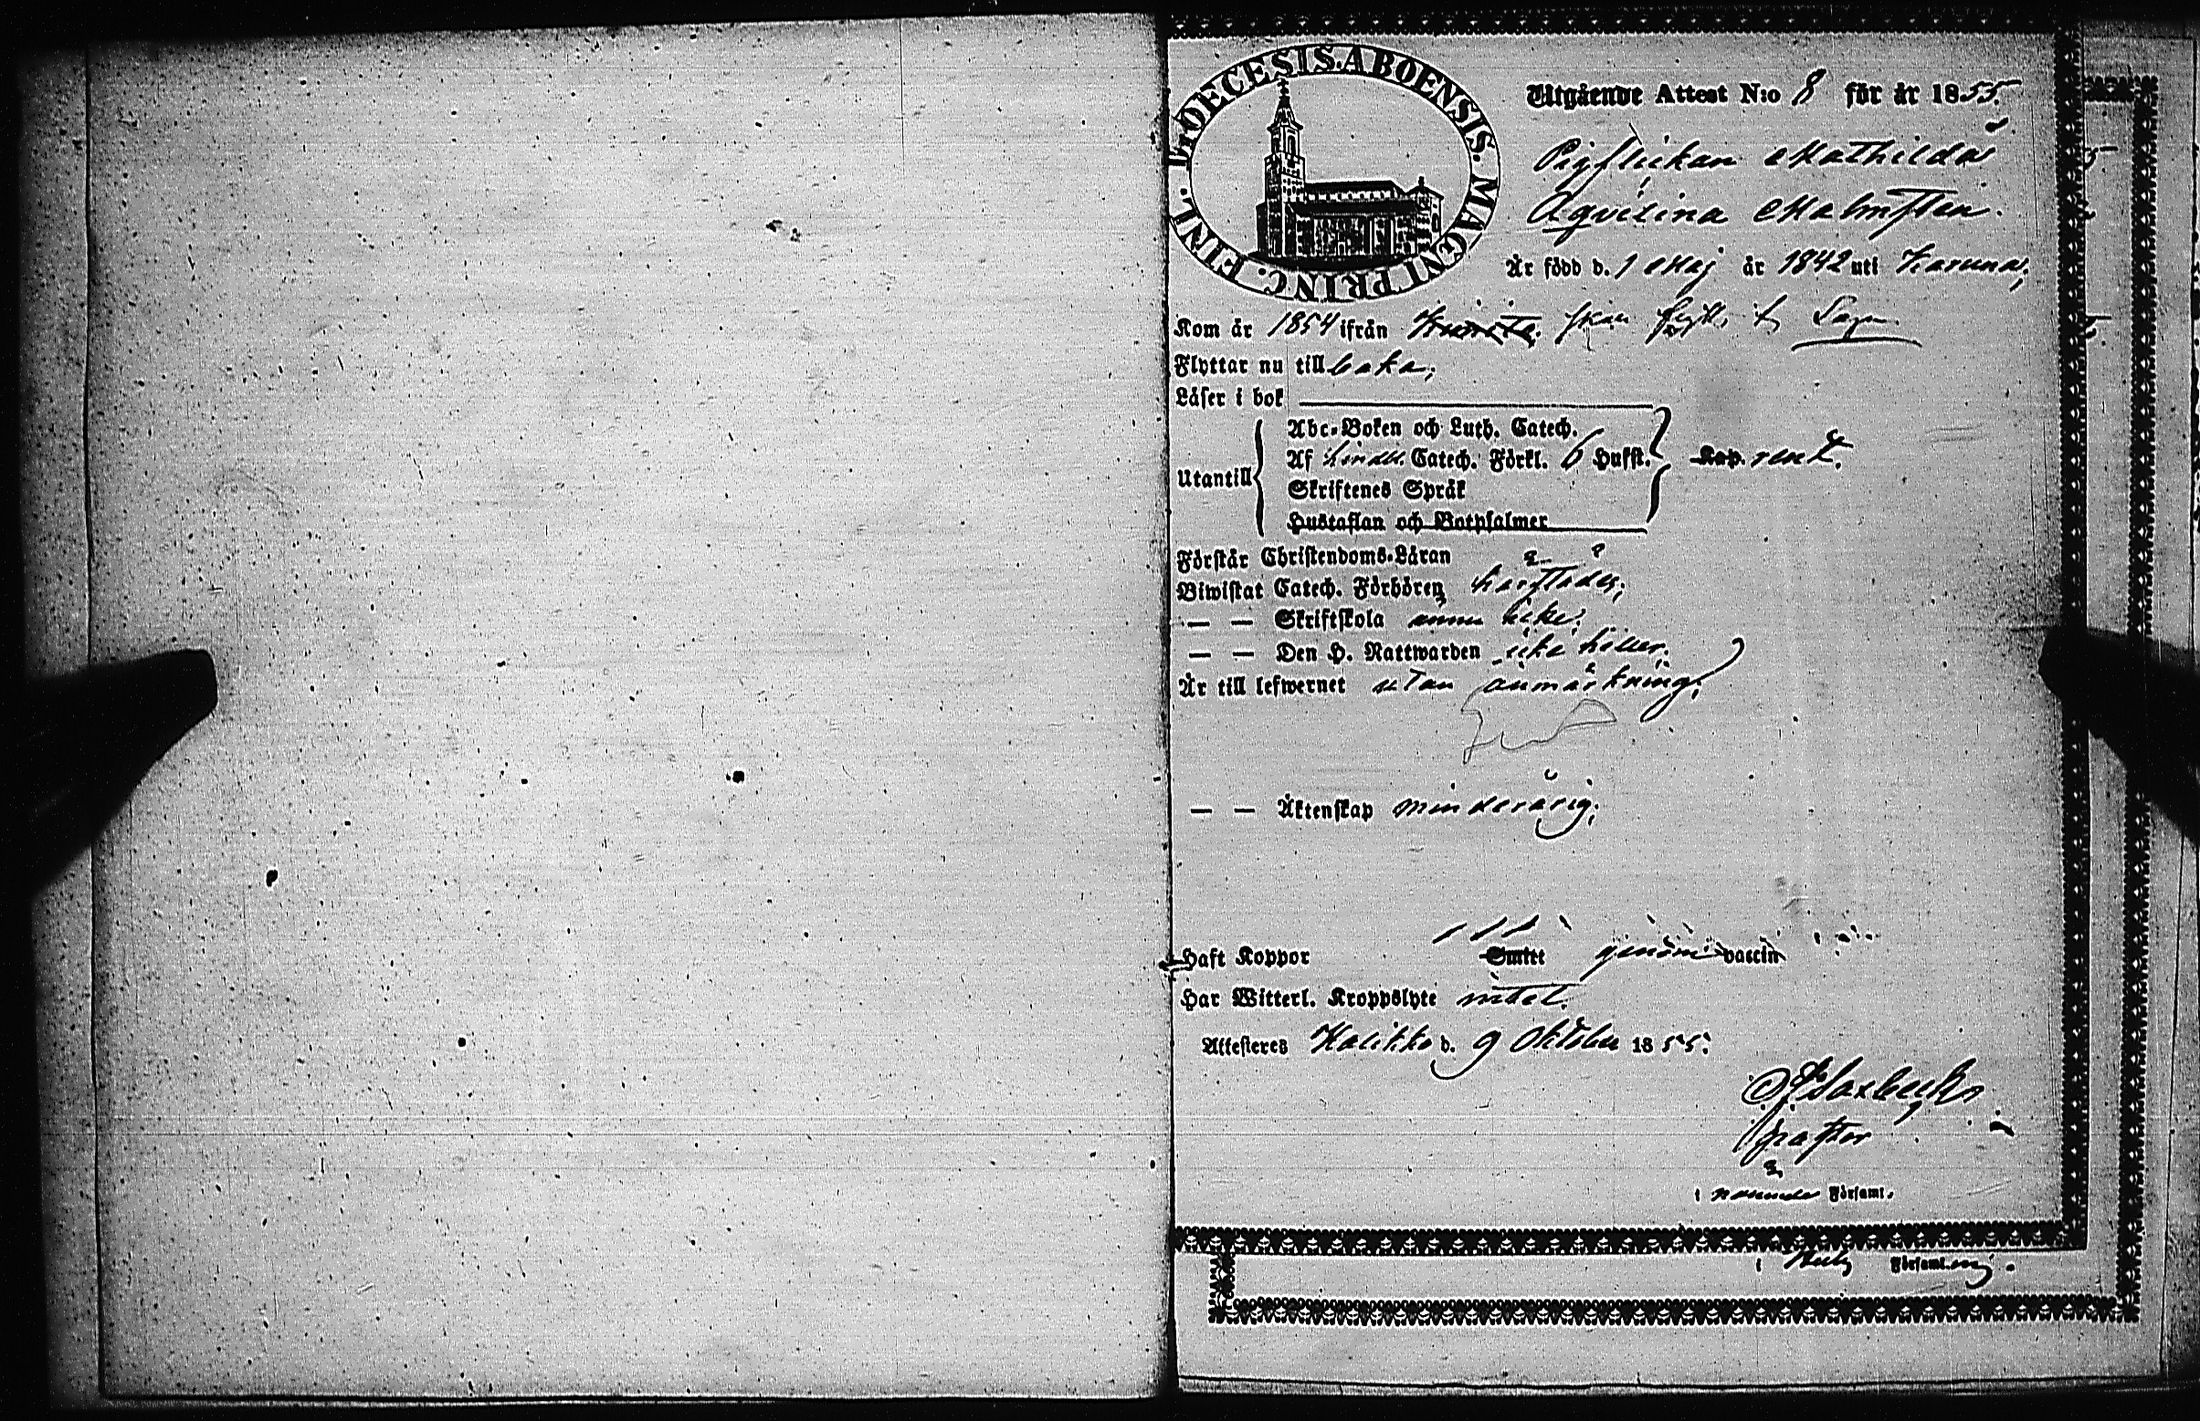 SIGILL. DIOECESIS. ABOENSIS. MAGNI PRINC. FINL.
Utgående Attest N:o 8 för år 1855.
Pigflickan Mathilda
Aqvilina Malmsten.
Är född d. 1 Maj år 1842 uti Karuna;
Kom år 1854 ifrån
Flyttar nu tillbaka;
Läser i bok
Abc-Boken och Luth. Catech.
Utantill Af Catech. Förkl. 6 Hufst. Kap. rent.
Skriftenes Språk
Hustaflan och Botpsalmer
Förstår Christendoms-Läran
Biwistat Catech. Förhören
— — Skriftskola ännu icke;
— — Den H. Nattwarden icke heller.
Är till lefwernet utan anmärkning;
— — Äktenskap minderårig;
Haft Koppor Smitt genom vaccin
Har Witterl. Kroppslyte intet.
Attesteres Halikko d. 9 Oktober 1855.
pastor
i Församl.
i Församl.